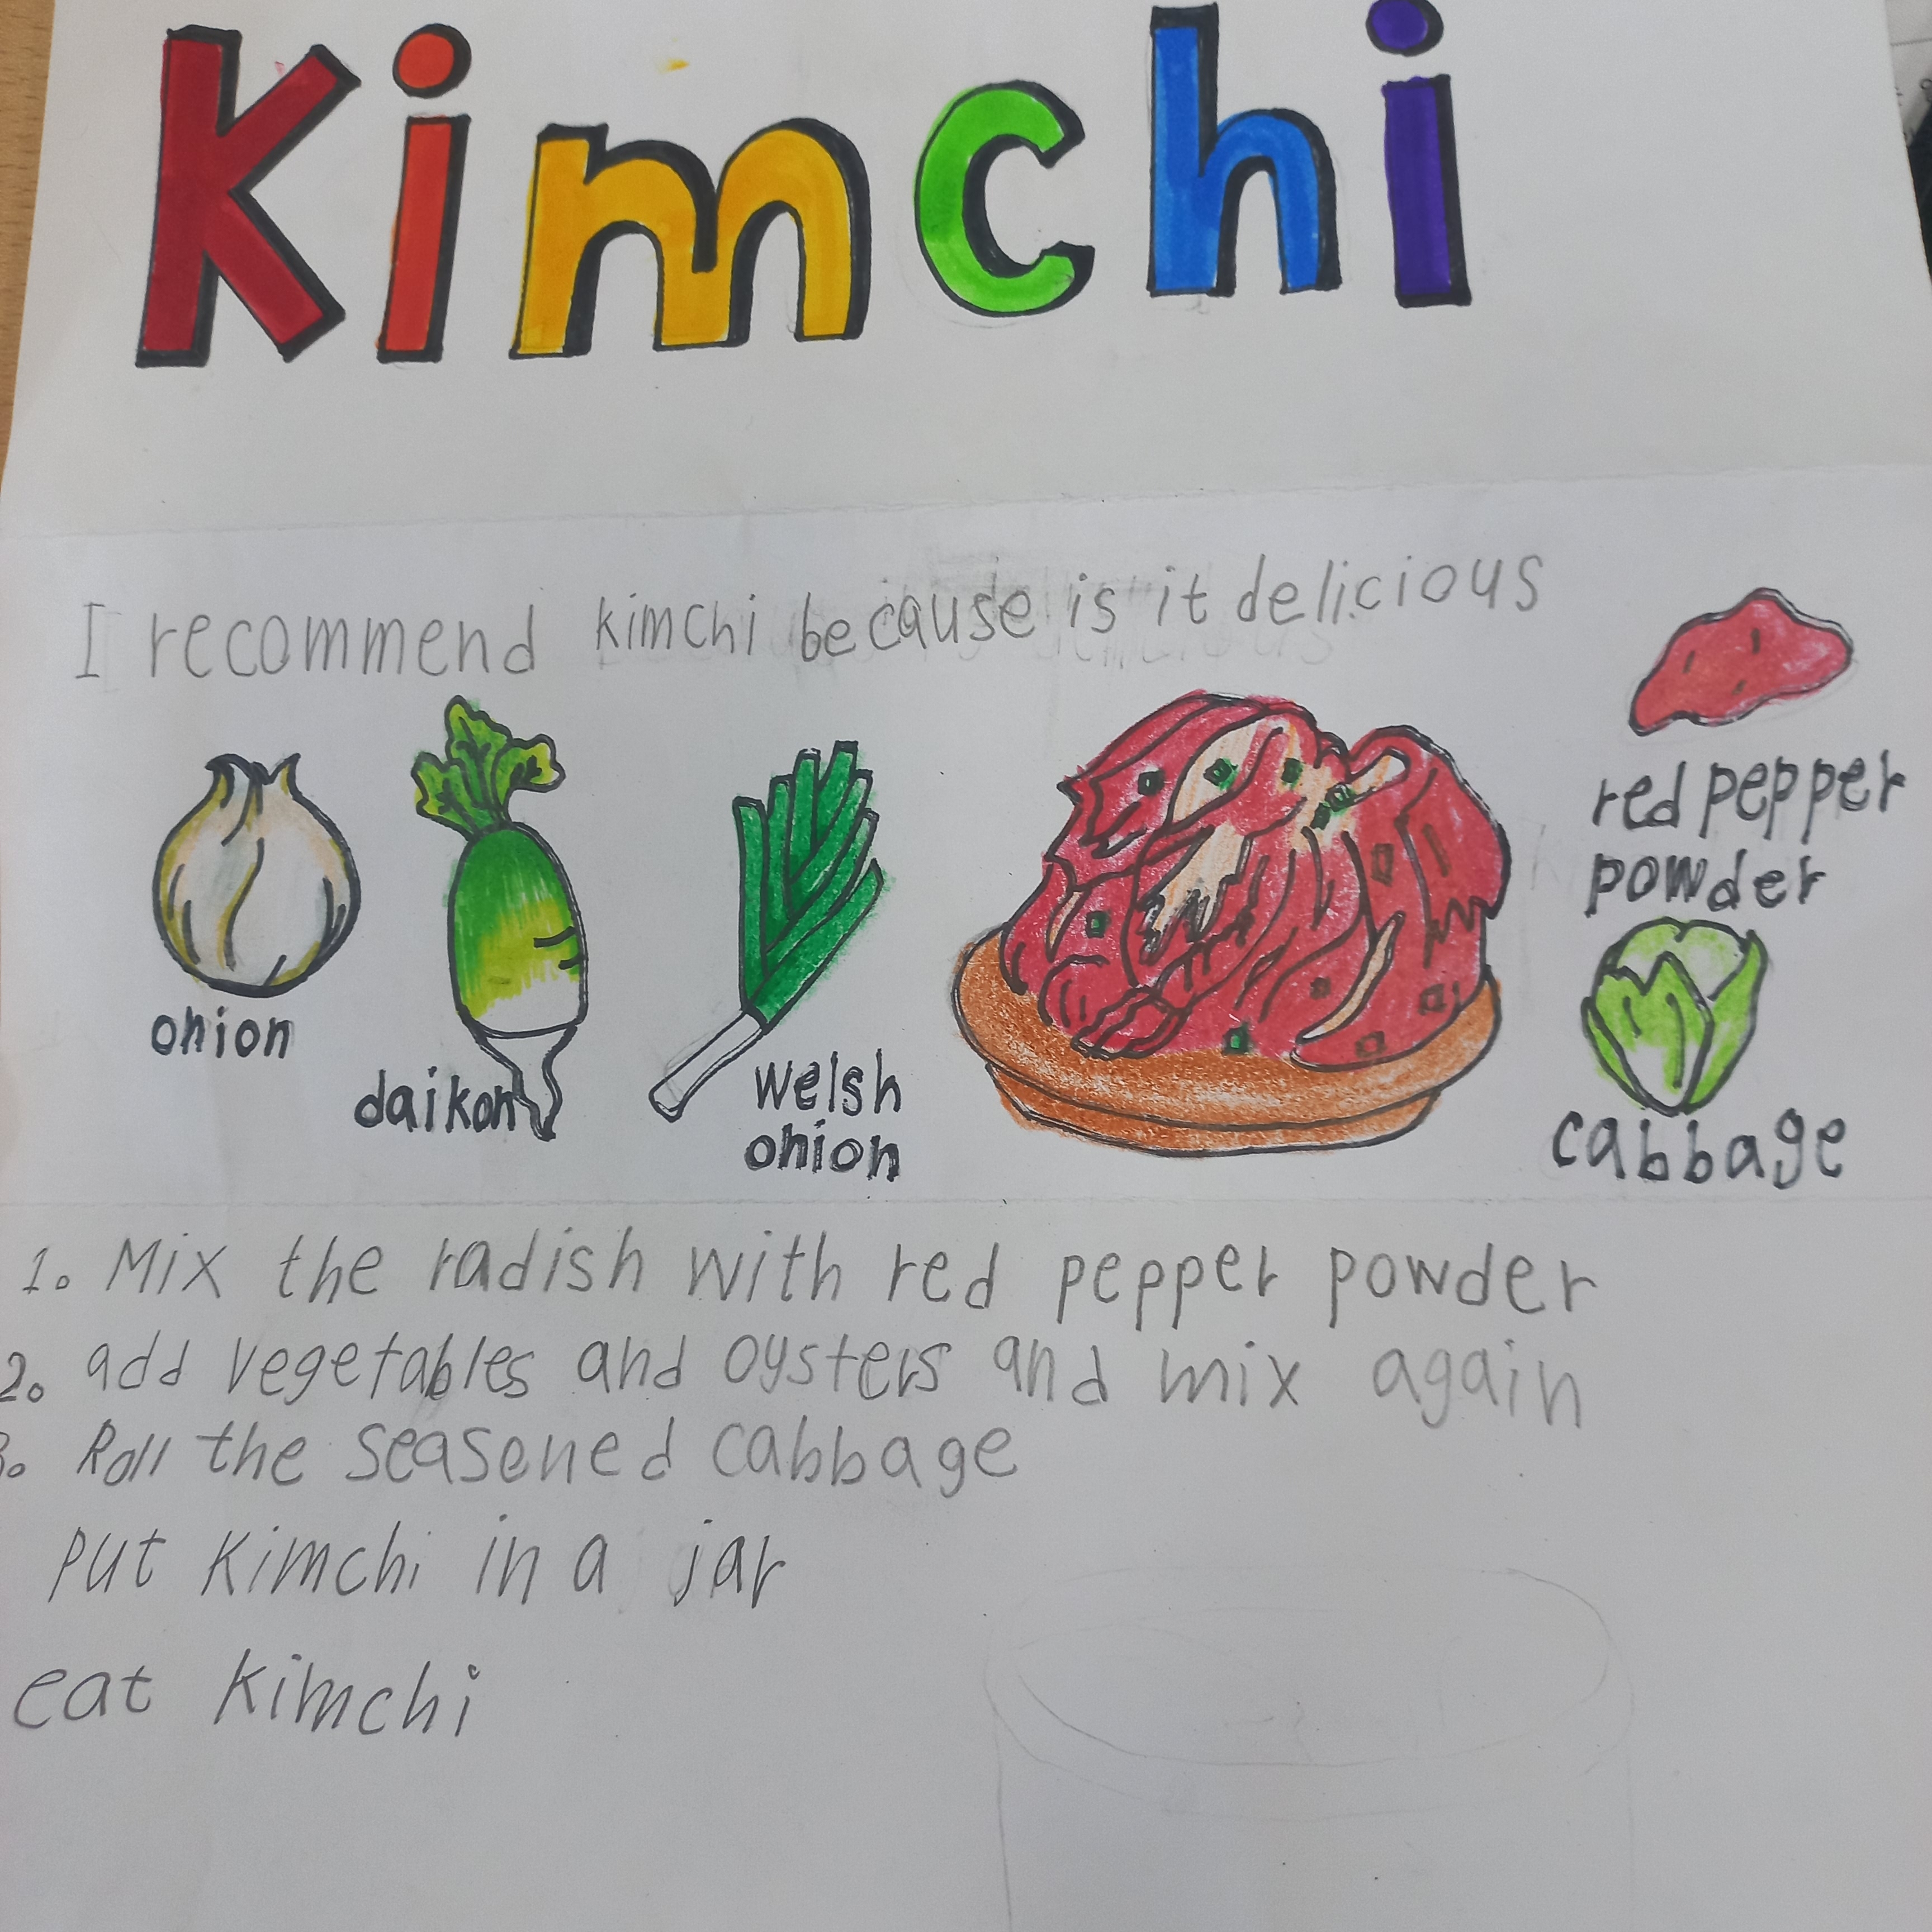 Kimchi
I recommend kimchi because is it delicious
onion
daikon
welsh
onion
red pepper
powder
cabbage
1. Mix the radish with red pepper powder
2. add vegetables and oysters and mix again
3. Roll the seasoned cabbage
put kimchi in a jar
eat kimchi